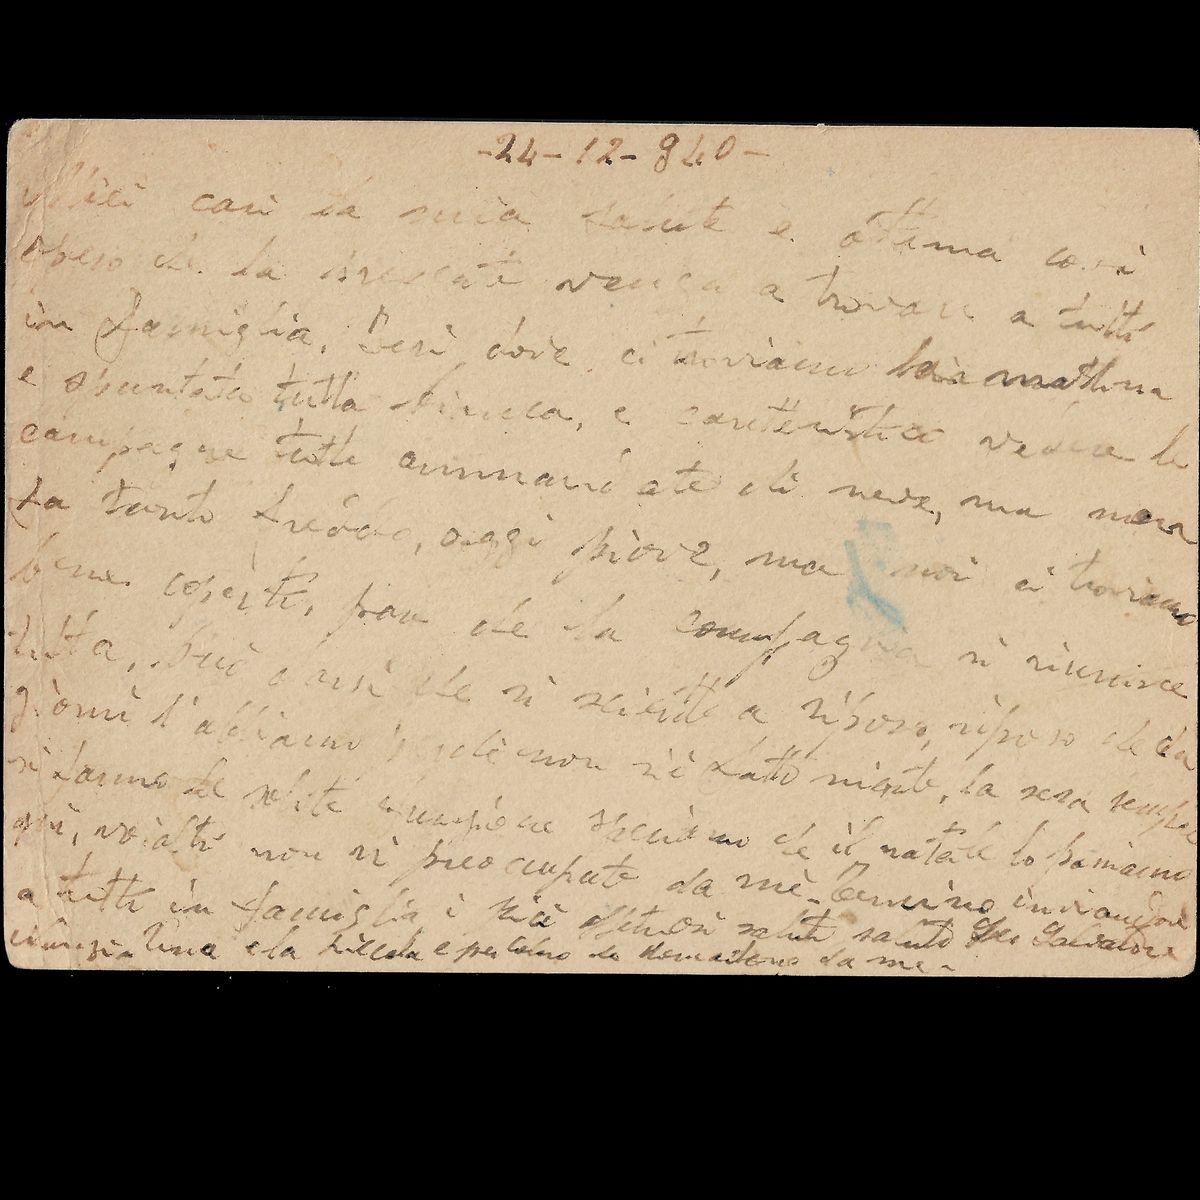 -24-12-940-
Miei cari la mia salute e ottima così
spero che la presente venga a trovare a tutti
in famiglia. Ieri dove ci troviamo la mattina
e spuntata tutta bianca, e caratteristico vedere le
campagne tutte ammandate di neve, ma non
fa tanto freddo, oggi piove, ma noi ci troviamo
bene coperti, pare che la compagnia si riunisce
tutta, può darsi che si scende a riposo, riposo che da
giorni l'abbiamo che non si è fatto niente, la sera sempre
si fanno le solite speriamo che il natale lo passiamo
qui, voialtri non vi preocupate da me. Termino inviandovi
a tutti in famiglia i più affetuosi saluti saluto Salvatore
Lina e la piccola e da me.